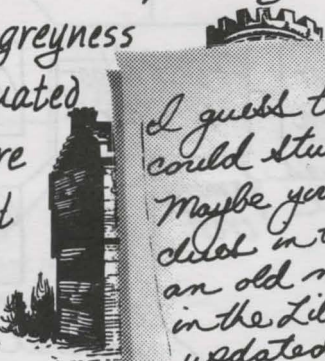 greyness
uated
re
d
I guess t
could stu
Maybe you
clues in t
an old m
in the Lib
updated